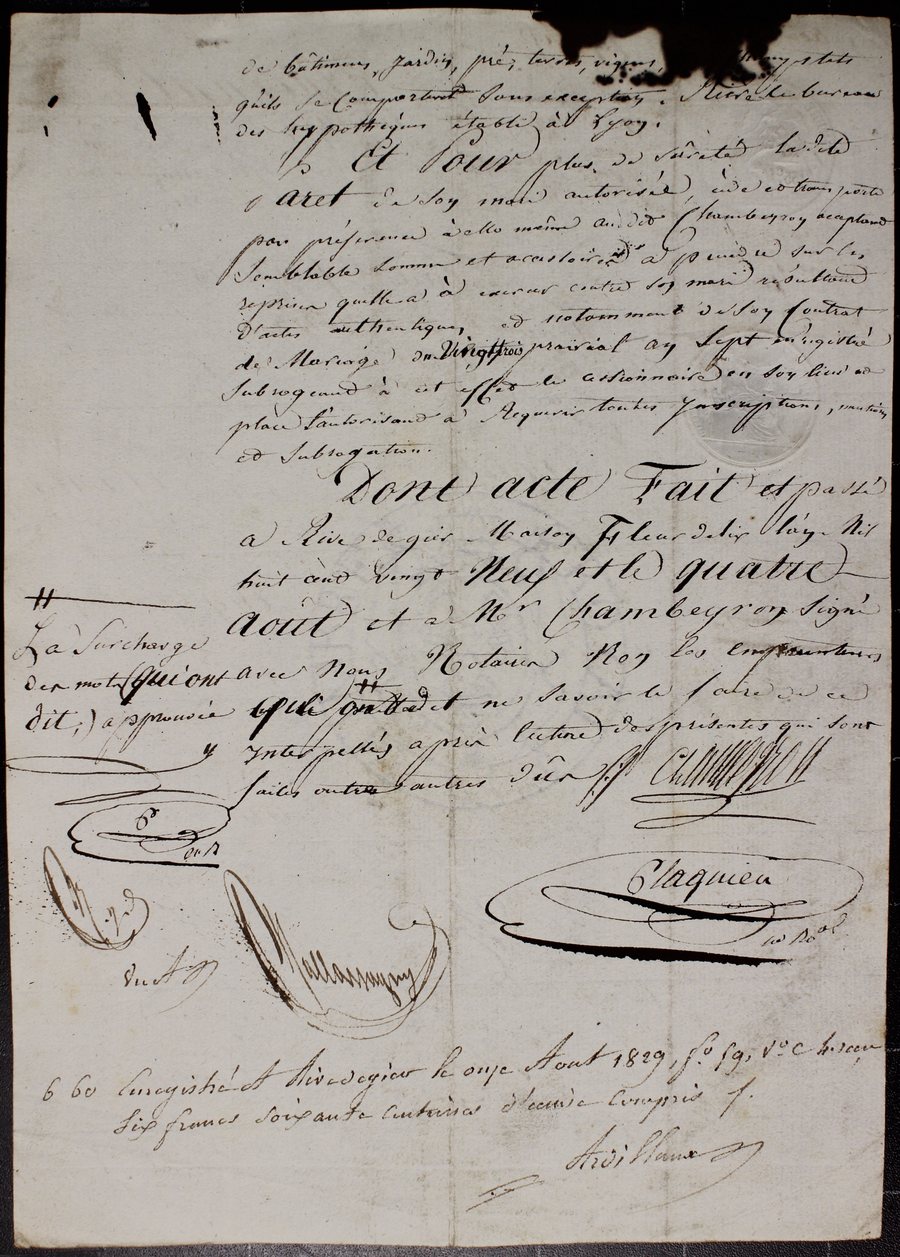 de bâtimens, jardin, pré, terres, vignes,
qu'ils se comportent sans exception. Rière le bureau
des hypothèques établi à Lyon.
Et Pour plus de sûreté ladite
aret de son mari autorisée, cède et transporte
par préférence à elle même audit Chambeyron acceptant
semblable somme et accessoires à prendre sur les
reprises quelle a à exercer contre son mari résultant
D'actes authentiques, et notamment de son Contrat
de Mariage du Vingt trois prairial an sept enregistré
Subrogeant à cet effet le cessionnaire en son lieu et
place l'autorisant à Requérir toutes Inscriptions,
et subrogation.
Dont acte Fait et passé
a Rive de gier Maison Fleurdelix l'an Mil
huit cent vingt Neuf et le quatre
août et a Mr Chambeyron signé
avec Nous Notaires Non les emprunteurs
qui ont dit ne savoir le faire de ce
Interpellés après lecture des présentes qui sont
faites outre autres dûes J.P. Chambeyron
#
La Surcharge
des mots (qui ont
dit,) approuvée
Plaquieu
no Roal
6 60 Enregistré A Rivedegier le onze Aout 1829, fo 59, Vo C 4. reçu
six francs soixante centimes dixième compris